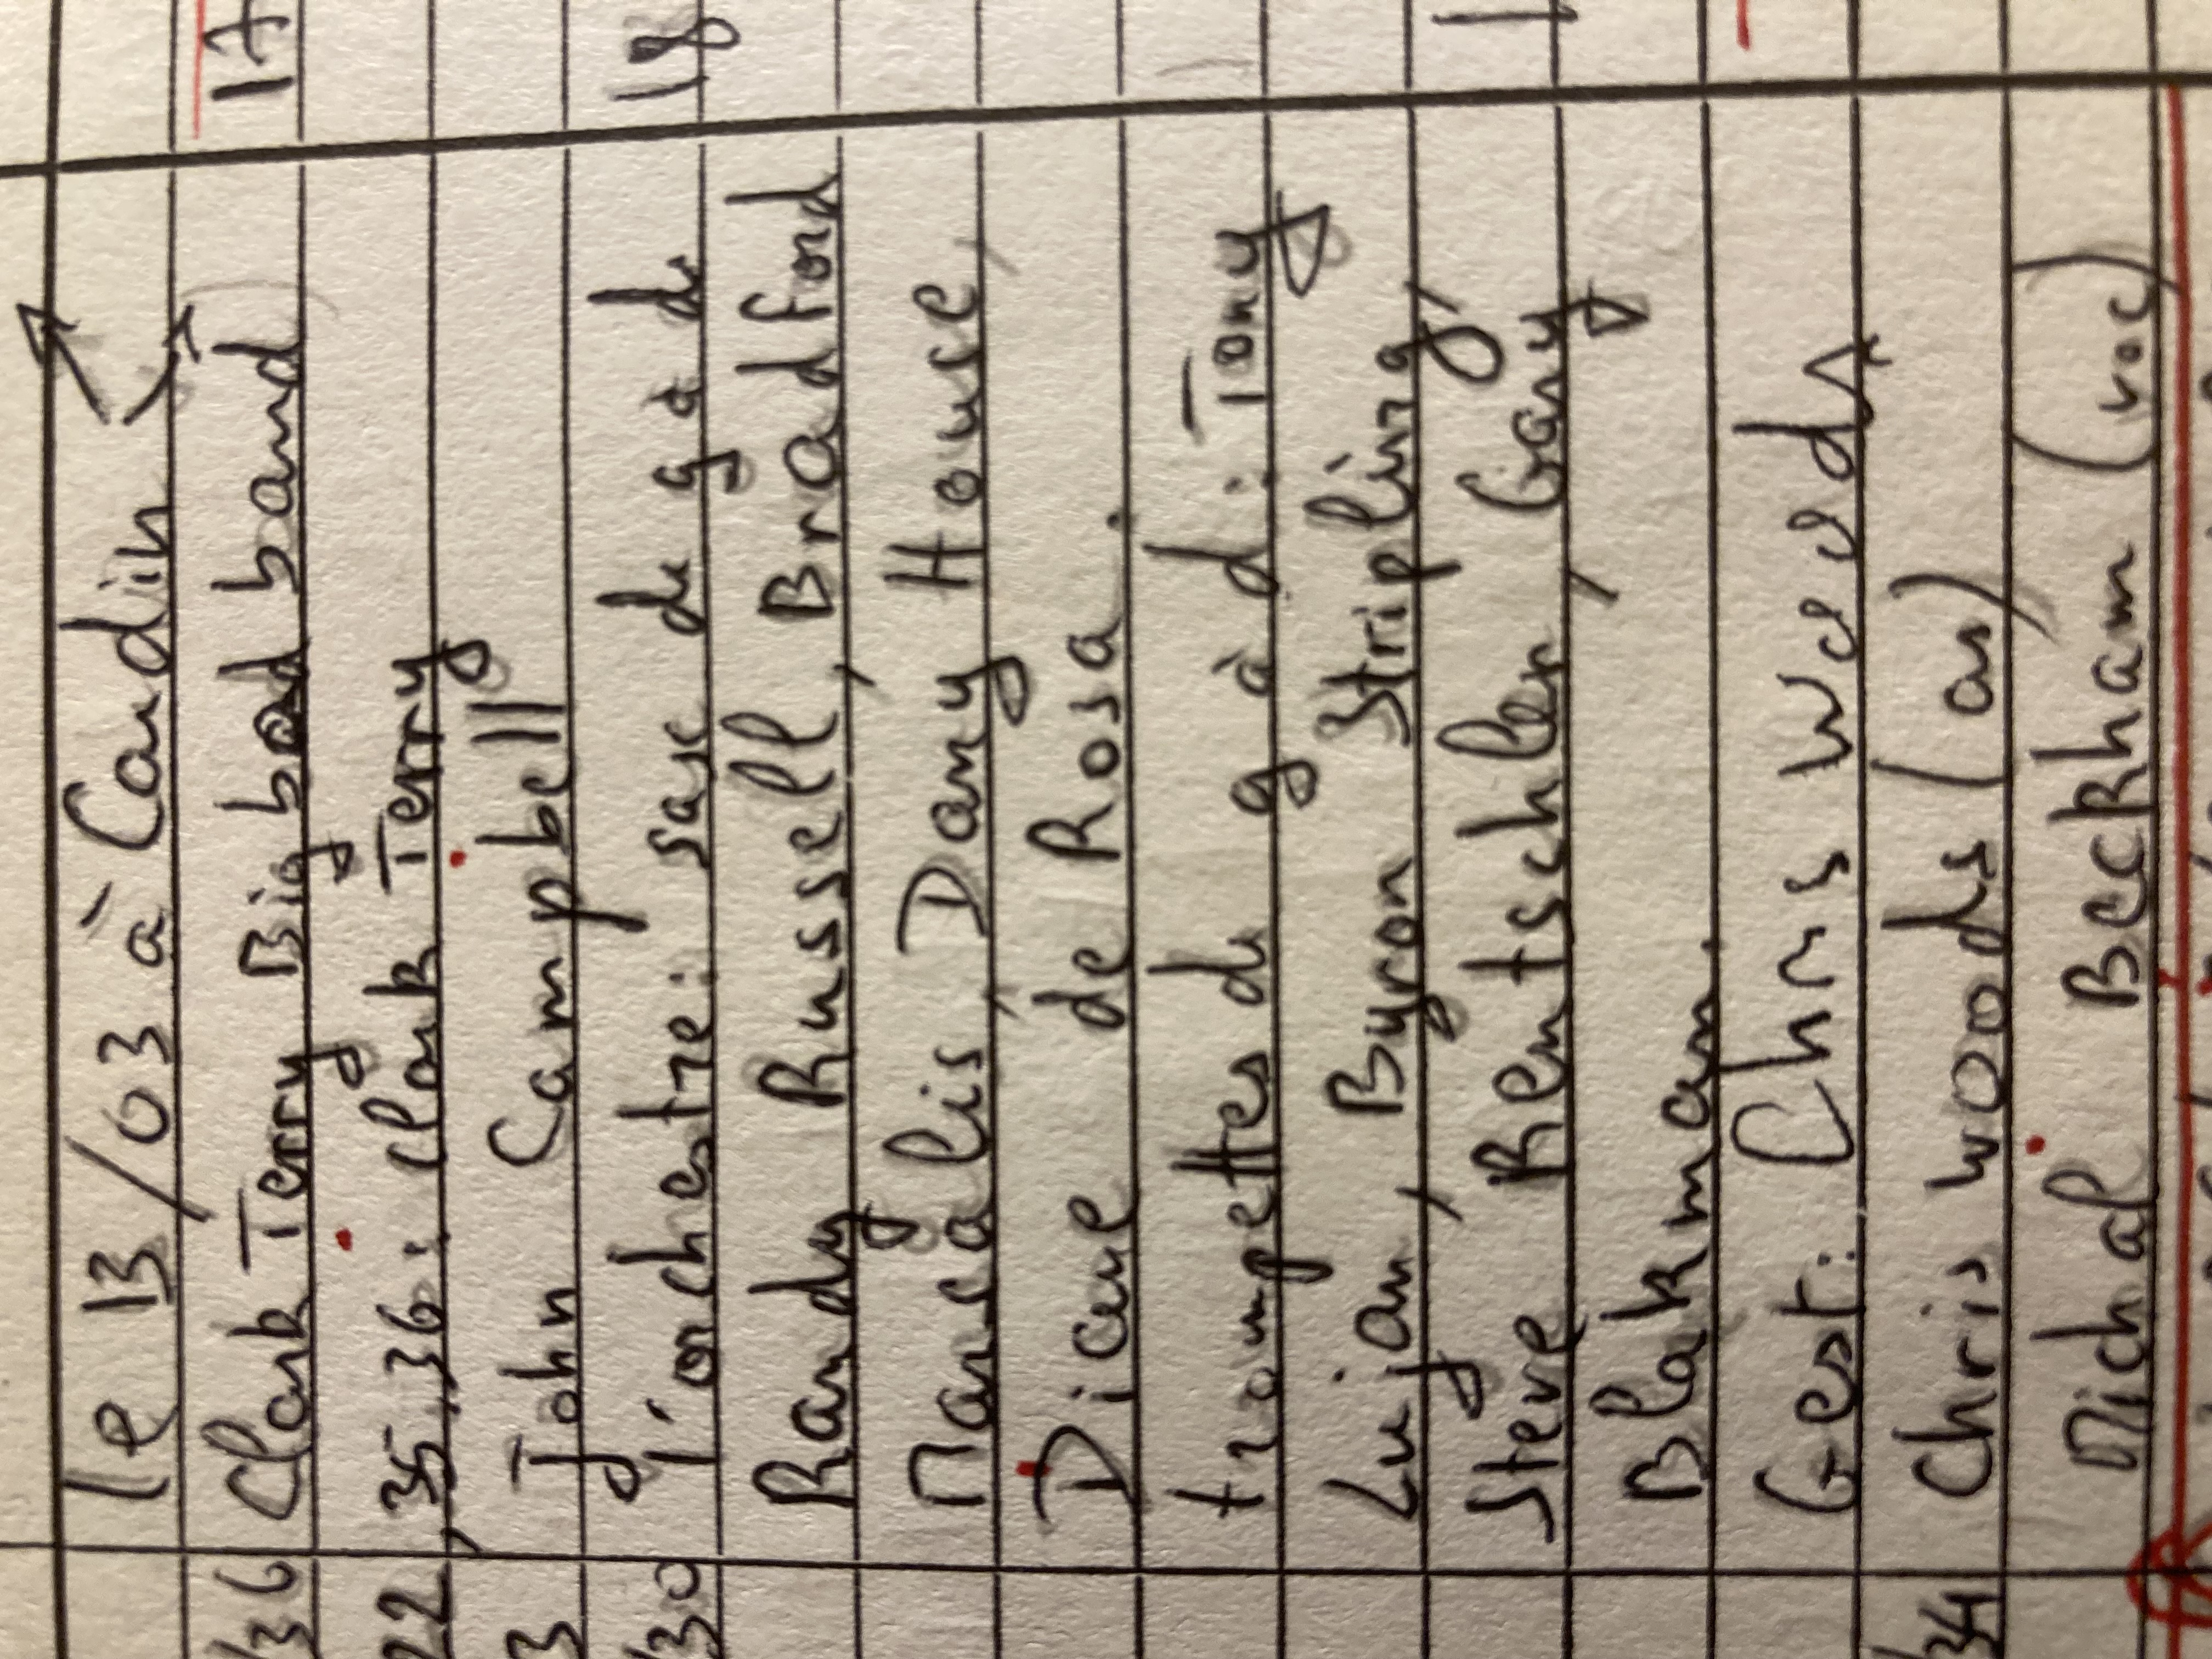 le 13/03 à Cardin
/36 Clark Terry Big bad band 17
22,35,36: Clark Terry
3 John Campbell
/30 l'orchestre: saxe de g à dr 18
Randy Russell, Bradford
Marsalis, Dany House,
Diane de Rosa.
trompettes de g à d: Tony
Lujan, Byron Stripling,
Steve Rentschler, Gary
Blakman.
Gest: Chris Woods
/34 Chris Woods (as)
Michal Beckham (voc)